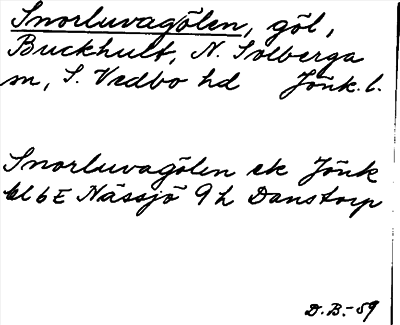 Snorluvagölen, göl,
Buckhult, N. Solberga
sn, S. Vedbo hd Jönk. l.
Snorluvagölen ek Jönk
bl 6E Nässjö 9h Danstorp
D.B.-59